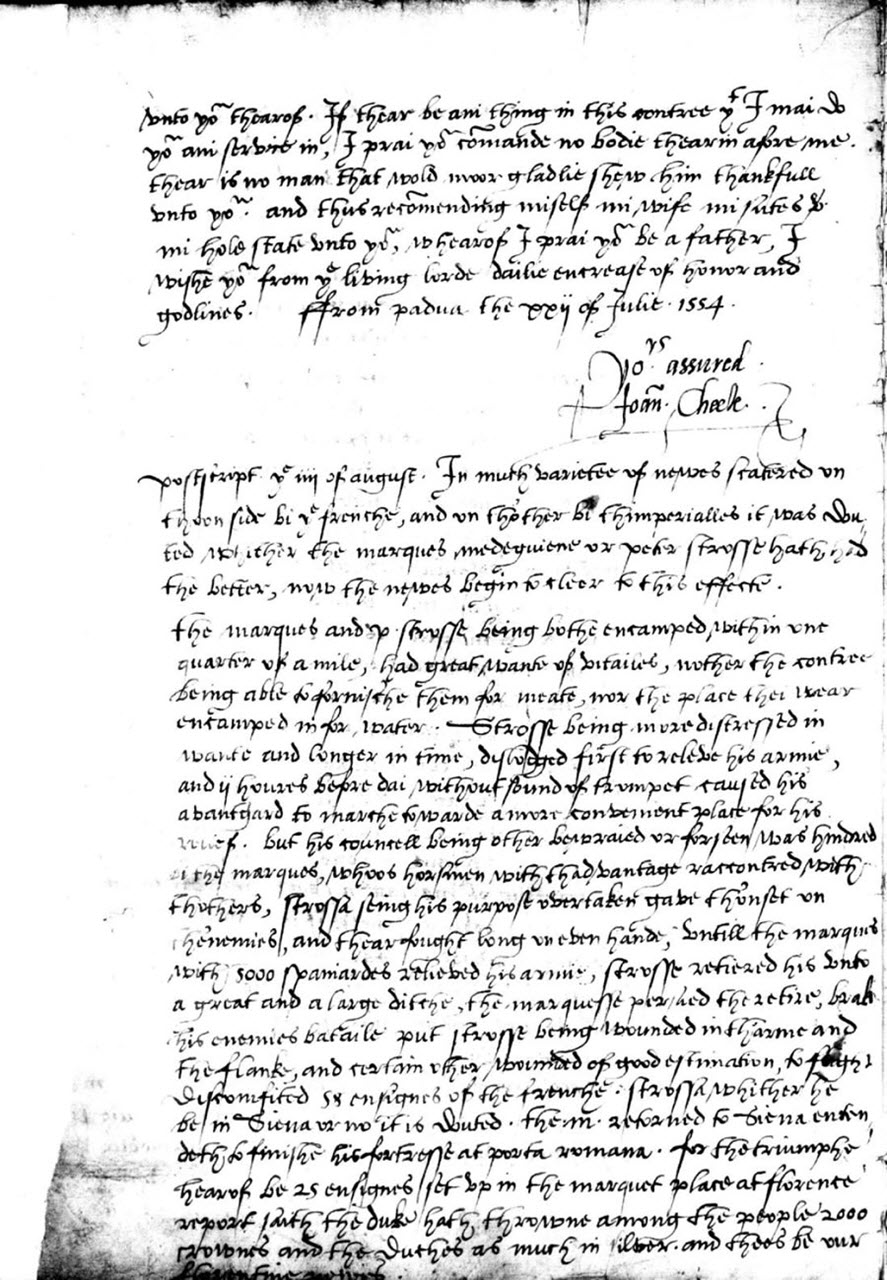 vnto yoᵘ thearof. If thear be ani thing in this contree yᵗ I mai do
yoᵘ ani service in, I prai yoᵘ cōmande no bodie thearin afore me.
thear is no man that wold moor gladlie shew him thankfull
vnto yoᵘ. and thus recōmending miself mi wife mi sutes &
mi hole state vnto yoᵘ, whearof I prai yoᵘ be a father, I
wishe yoᵘ from yᵉ living lorde dailie encrease of honor and
godlines. ffrom padua the xxij of Julie. 1554.
Yoʳˢ assured.
Joān. Cheek.
postscript yᵉ iiij of august. In much varietee of newes scatered on
thoon side bi yᵉ frenche, and on thother bi thimperialles it was dou
ted whither the marques medeguiene or peter strosse hath had
the better, now the newes begin to cleer to this effecte.
the marques and p. strosse being bothe encamped within one
quarter of a mile, had great wante of vitailes, nother the contree
being able to fornische them for meate, nor the place thei wear
encamped in for water. Strosse being more distressed in
wante and longer in time, dislodged first to releve his armie,
and ij houres before dai without sound of trompet caused his
avantgard to marche towarde a more convenient place for his
relief. but his councell being other bewraied or forseen was hindred
bi the marques, whoos horsmen with thadvantage raccontred with
thothers, strossa seing his purpose overtaken gave thonset on
thenemies, and thear fought long on even hande, untill the marques
with 5000 spaniardes relieved his armie, strosse retiered his vnto
a great and a large ditche, the marquesse persued the retire, brak
his enemies bataile put strosse being wounded in tharme and
the flanke, and certain other wounded of good estimation, to flight
discomfited 58 ensignes of the frenche. strossa whither he
be in Siena or no it is douted. the m. retorned to Siena enten
deth to finishe his fortresse at porta romana. for the triumphe
hearof be 25 ensignes set vp in the marquet place at florence
report saith the duke hath throwne among the people 2000
crownes and the duches as much in silver. and thees be our
florentine newes.